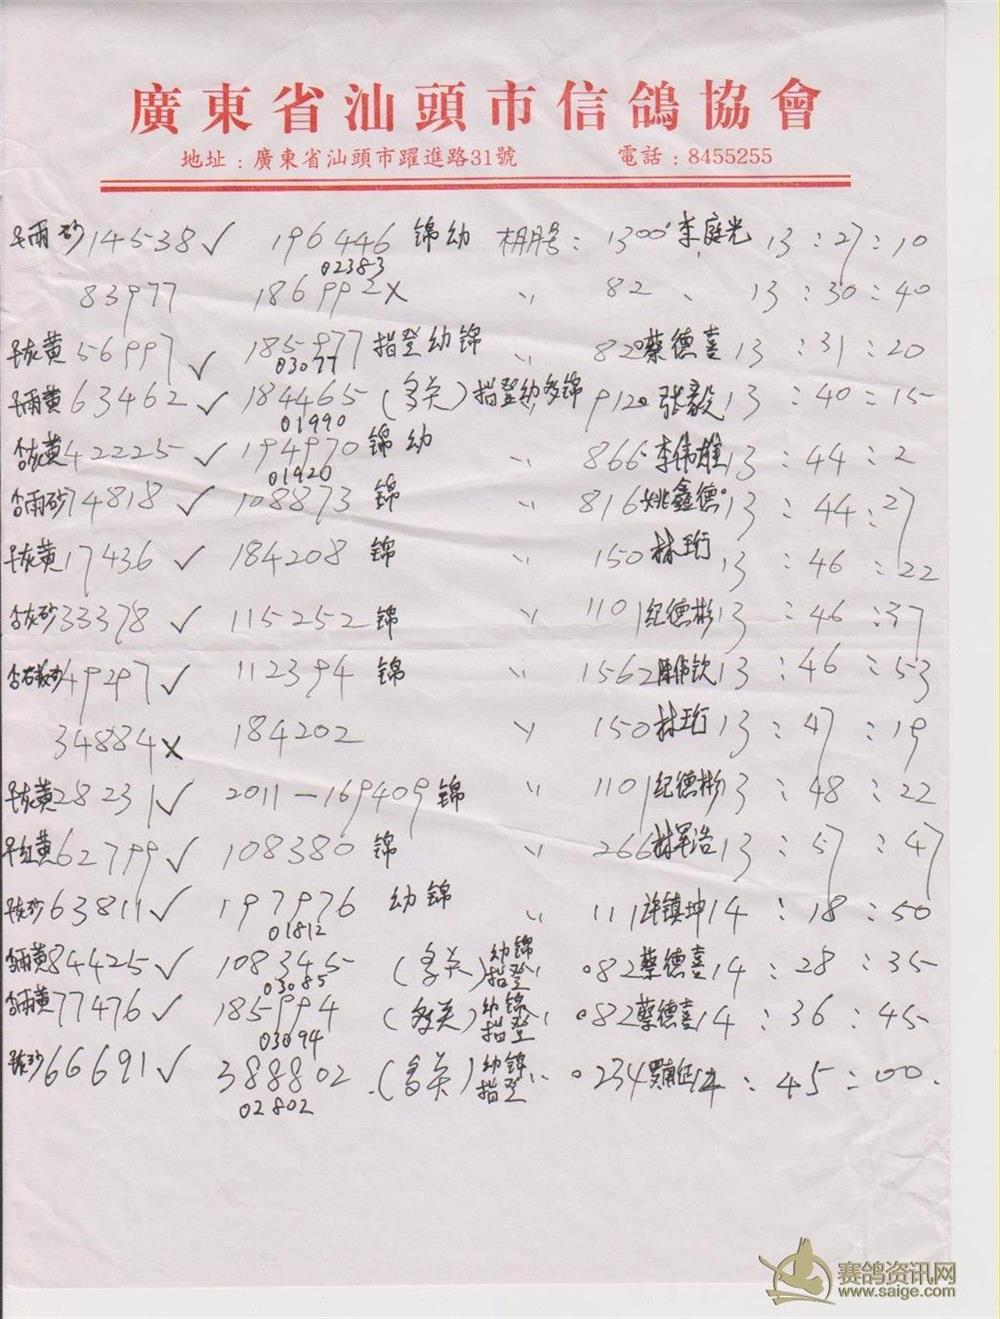 廣東省汕頭市信鴿協會
地址：廣東省汕頭市躍進路31號 電話：8455255
雨砂 14538 ✓ 196446 锦幼 棚号： 1300 李庭光 13：27：10
02383
83977 186992 × 〃 82 13：30：40
灰黄 56997 ✓ 185977 指登幼锦 〃 82 蔡德喜 13：31：20
03077
雨黄 63462 ✓ 184465（多关）指登幼多锦 〃 912 张毅 13：40：15
01990
灰黄 42225 ✓ 194970 锦幼 〃 866 李伟雄 13：44：2
01920
雨砂 74818 ✓ 108873 锦 〃 816 姚鑫德 13：44：27
灰黄 17436 ✓ 184208 锦 〃 150 林珩 13：46：22
灰砂 33378 ✓ 115252 锦 〃 1101 纪德彬 13：46：37
49297 ✓ 112394 锦 〃 1562 陈伟钦 13：46：53
34884 × 184202 〃 150 林珩 13：47：19
灰黄 28231 ✓ 2011－169409 锦 〃 1101 纪德彬 13：48：22
红黄 62799 ✓ 108380 锦 〃 266 林军浩 13：57：47
灰砂 63811 ✓ 197976 幼锦 〃 111 许镇坤 14：18：50
01812
雨黄 84425 ✓ 108345（多关）幼锦指登 〃 082 蔡德喜 14：28：35
03085
雨黄 77476 ✓ 185994（多关）幼锦指登 〃 082 蔡德喜 14：36：45
03094
灰砂 66691 ✓ 388802（多关）幼锦指登 〃 0234 14：45：00
02802
赛鸽资讯网
www.saige.com